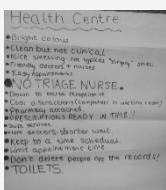 Health Centre
• Bright colours
• Clean but not clinical
• Nice smelling - not typical "surgery" smell
• Friendly doctors + nurses
• Easy Appointments
• NO TRIAGE NURSE.
• Down to earth Reception
• Cool distractions (computers in waiting room)
• Pharmacy attached
• PRESCRIPTIONS READY IN TIME!!
• services
• More doctors - shorter wait
• Keep to a time schedual
• Limit appointment time
• Don't delete people off the records!!
• TOILETS.